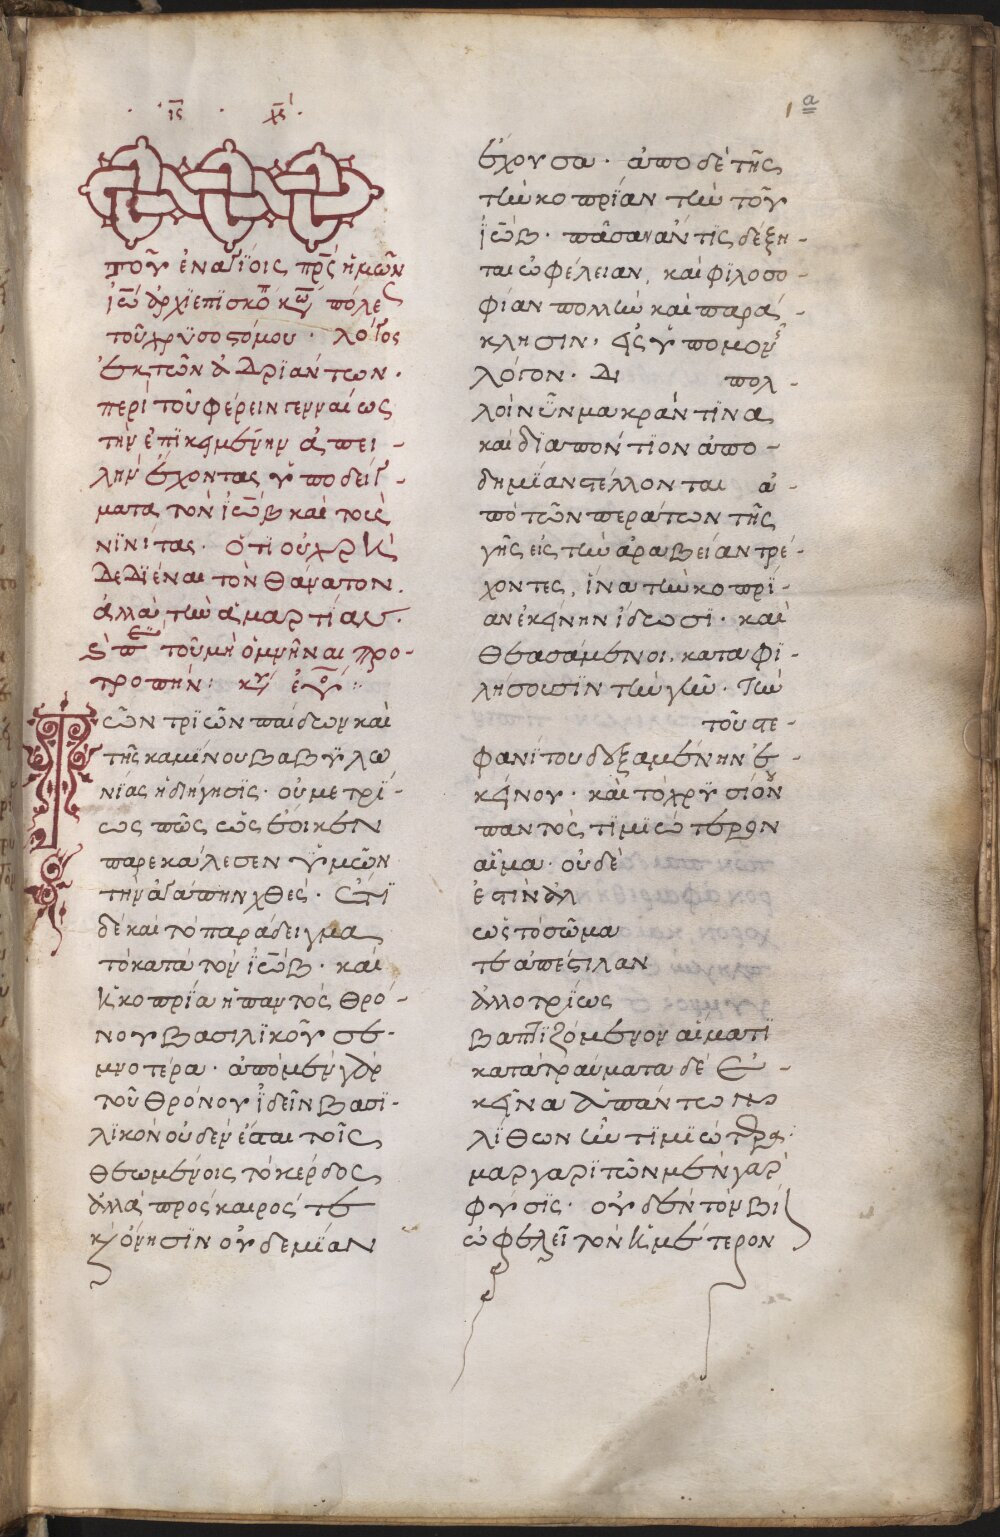 ι̅ς̅ χ̅ς̅
1 a
τοῦ ἐν ἁγίοις πρ̅ς ἡμῶν
ἰω̅ ἀρχϊεπϊσκο κω πόλε
τοῦ χρϋσοστόμου · λόγος
ἐκ τῶν ἀνδρϊάντων ·
περὶ τοῦ φέρειν γενναίως
τὴν ἐπϊκειμένην ἀπει -
λὴν ἔχοντας ὑποδείγ -
ματα τὸν ἰω̅β καὶ τοὺς
νϊνίτας · ὅτϊ οὐ χρὴ
δεδϊέναι τὸν θάνατον ·
ἀλλὰ τὴν ἁμαρτίαν ·
τοῦ μὴ ὀμνῆναι προ -
τροπὴν :
τῶν τρϊῶν παίδων καὶ
τῆς καμΐνου βαβϋλω
νίας ἡ διήγησϊς · οὐ μετρΐ -
ως πῶς ὡς ἔοικεν
παρεκάλεσεν ὑμῶν
τὴν ἀγάπην χθές · ἔτϊ
δὲ καὶ τὸ παράδειγμα
τὸ κατὰ τὸν ἰω̅β · καὶ
ἡ κοπρία ἡ παντὸς θρό -
νου βασιλϊκοῦ σε -
μνοτέρα · ἀπὸ μὲν γὰρ
τοῦ θρόνου ἰδεῖν βασϊ -
λϊκὸν οὐδὲν ἔσται τοῖς
θεωμένοις τὸ κέρδος
ἀλλὰ πρόσκαιρός τε
κ ὄνησϊν οὐδεμΐαν
ἔχουσα · ἀπὸ δὲ τῆς
τὴν κοπρΐαν τὴν τοῦ
ἰω̅β · πᾶσαν ἄν τϊς δέξη -
ται ὠφέλειαν, καὶ φϊλοσο -
φίαν πολλὴν καὶ παρά -
κλησιν, εἰς ὑπομον
λόγον · δι πολ -
λοὶ νῦν μακράν τϊνα
καὶ δϊαπόντϊον ἀπο -
δημΐαν στέλλονται ἀ -
πὸ τῶν περάτων τῆς
γῆς εἰς τὴν ἀραβείαν τρέ -
χοντες, ἵνα τὴν κοπρΐ -
αν ἐκείνην ἴδωσϊ · καὶ
θεασάμενοι, καταφι -
λήσωσϊν τὴν γῆν · τὴν
τοῦ στε -
φανΐτου δεξαμένην ἐ -
κείνου · καὶ τὸ χρυσίου
παντὸς τϊμϊώτερον
αἷμα · οὐδὲ
ἐστὶν
ὡς τὸ σῶμα
τε ἀπέστιλαν
ἀλλοτρΐως
βαπτϊζόμενον αἵματϊ
κατὰ τραύματα δὲ ἐ -
κεῖνα ἁπάντων
λΐθων ἦν τϊμϊώτερα ·
μαργαρϊτῶν μὲν γὰρ
φύσϊς · οὐδὲν τὸν βί
ὠφελεῖ τὸν ἡμέτερον